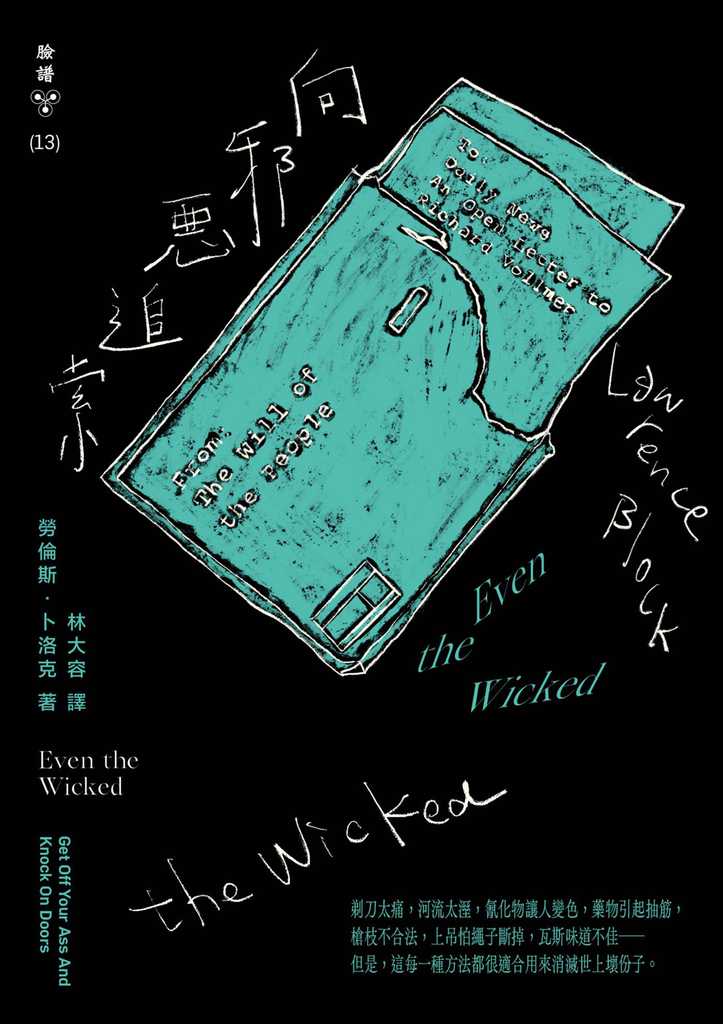 臉
譜
(13)
向
邪
惡
追
索
To:
Daily News
An Open Letter to
Richard Vollmer
From:
The Will of
the People
Law
rence
Block
Even
the
Wicked
勞倫斯·卜洛克 著
林大容 譯
Even the
Wicked
the Wicked
Get Off Your Ass And
Knock On Doors
剃刀太痛，河流太溼，氰化物讓人變色，藥物引起抽筋，
槍枝不合法，上吊怕繩子斷掉，瓦斯味道不佳——
但是，這每一種方法都很適合用來消滅世上壞份子。